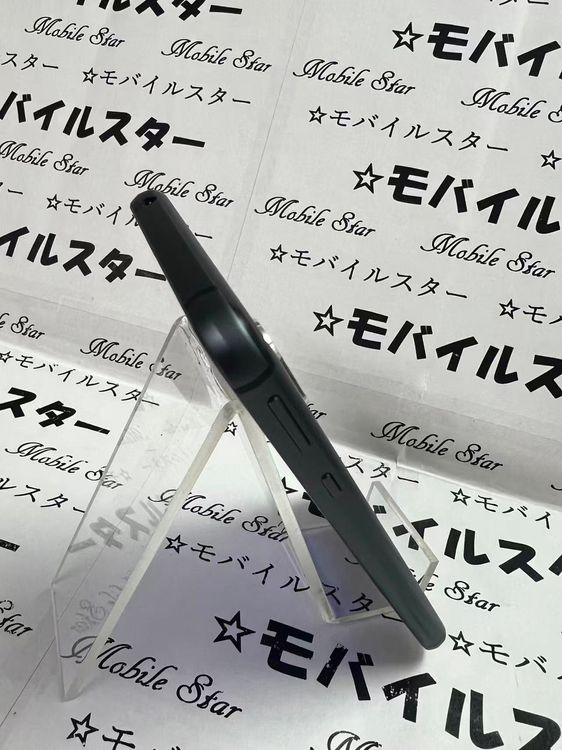 モバイルスター
Mobile Star
Mobile Star
☆モバイ
スター
☆モバイルスター
Mobile Star
Mobile
バイルスター
☆モバイルスター
☆
Mobile Star
Mobile Star
☆モバイル
☆モバイ
Mobile Star
Mobile Star
イルスター
☆モバイルスター
☆モバイ
Mobile Star
☆モバイルス
☆モバイルスター
スター
Mobile Star
Mobile Star
☆モバイ
ルスター
モバイルス
☆モバイルスター
Mobile Star
☆モバイルス
☆モバイルス
Mobile Star
☆モ
Mobile